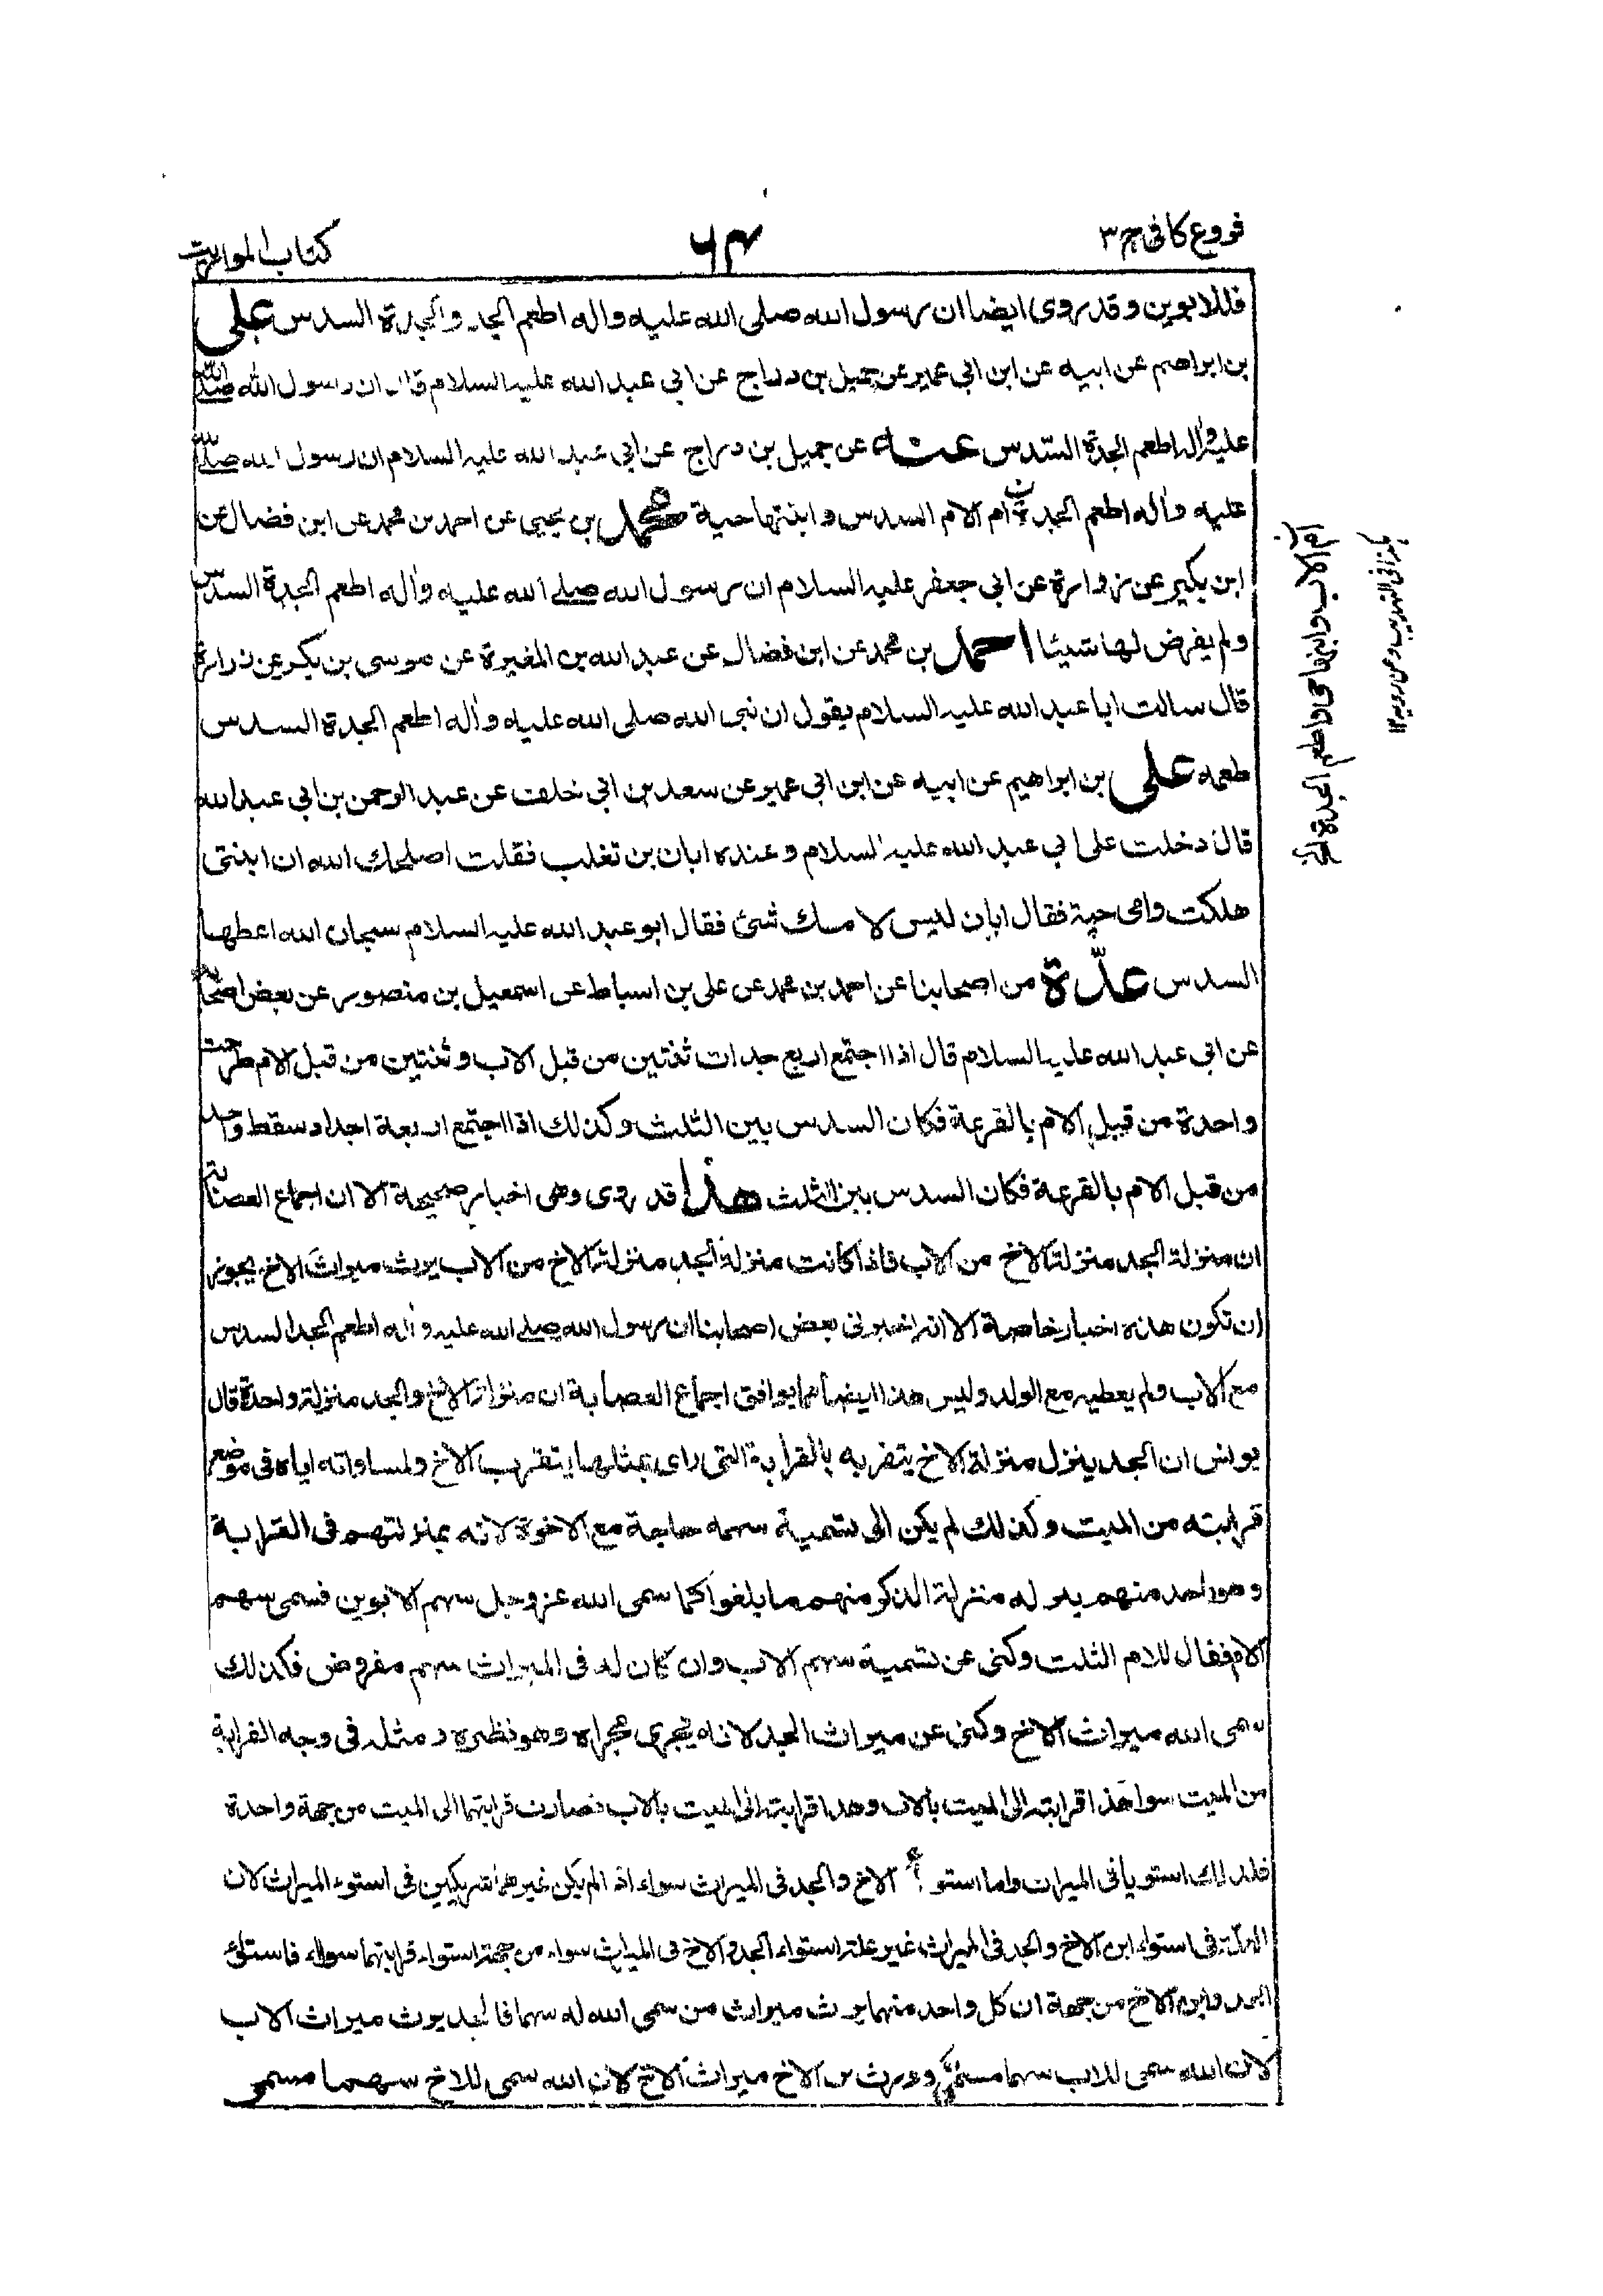 فروع كافى ج٣
٦٤
كتاب المواريث
فللابوين وقد روى ايضا ان رسول الله صلى الله عليه واله اطعم الجد والجدة السدس على
بن ابراهيم عن ابيه عن ابن ابي عمير عن جميل بن دراج عن ابي عبد الله عليه السلام قال ان رسول الله صلى الله
عليه واله اطعم الجدة السدس عنه عن جميل بن دراج عن ابي عبد الله عليه السلام ان رسول الله صلى الله
عليه واله اطعم الجدة ام الام السدس وابنتها حية محمد بن يحيى عن احمد بن محمد عن ابن فضال عن
ابن بكير عن زرارة عن ابي جعفر عليه السلام ان رسول الله صلى الله عليه واله اطعم الجدة السدس
ولم يفرض لها شيئا احمد بن محمد عن ابن فضال عن عبد الله بن المغيرة عن موسى بن بكر عن زرارة
قال سالت ابا عبد الله عليه السلام يقول ان نبى الله صلى الله عليه واله اطعم الجدة السدس
طعمه على بن ابراهيم عن ابيه عن ابن ابي عمير عن سعد بن ابي خلف عن عبد الرحمن بن ابي عبد الله
قال دخلت على ابي عبد الله عليه السلام وعنده ابان بن تغلب فقلت اصلحك الله ان ابنتى
هلكت وامى حية فقال ابان ليس لامك شئ فقال ابو عبد الله عليه السلام سبحان الله اعطها
السدس عدة من اصحابنا عن احمد بن محمد عن على بن اسباط عن اسمعيل بن منصور عن بعض اصحابه
عن ابى عبد الله عليه السلام قال اذا اجتمع اربع جدات ثنتين من قبل الاب وثنتين من قبل الام طرحت
واحدة من قبل الام بالقرعة فكان السدس بين الثلث وكذلك اذا اجتمع اربعة اجداد سقط واحد
من قبل الام بالقرعة فكان السدس بين الثلث هذا قد روى وهى اخبار صحيحة الا ان اجماع العصابة
ان منزلة الجد منزلة الاخ من الاب فاذا كانت منزلة الجد منزلة الاخ من الاب يرث ميراث الاخ يجوز
ان تكون هذه اخبار خاصة الا انه اخبرنى بعض اصحابنا ان رسول الله صلى الله عليه واله اطعم الجد السدس
مع الاب ولم يعطيه مع الولد وليس هذا ايضا مما يوافق اجماع العصابة ان منزلة الاخ والجد منزلة واحدة قال
يونس ان الجد ينزل منزلة الاخ يتقربه بالقرابة التى راى بمثلها يتقرب الاخ ولمساواته اياه فى موضع
قرابته من الميت وكذلك لم يكن الى تسمية سهمه حاجة مع الاخوة لانه بمنزلتهم فى القرابة
وهو واحد منهم له منزلة الذكر منهم ما بلغوا كما سمى الله عز وجل سهم الابوين فسمى سهم
الام فقال للام الثلث وكنى عن تسمية سهم الاب وان كان له فى الميراث سهم مفروض فكذلك
سمى الله ميراث الاخ وكنى عن ميراث الجد لانه يجرى مجراه وهو نظيره ومثله فى وجه القرابة
من الميت سوا هذا قرابته الى الميت بالاب وهذا قرابته الى الميت بالاب فصارت قرابتهما الى الميت من جهة واحدة
فلذلك استويا فى الميراث واما استوا الاخ والجد فى الميراث سواء اذا لم يكن غيرهما شريكين فى استوء الميراث لان
العلة فى استواء ابن الاخ والجد فى الميراث غير علة استواء الجد والاخ فى الميراث سواء من جهة استواء قرابتهما سواء فاستواء
الجد وابن الاخ من جهة ان كل واحد منهما يرث ميراث من سمى الله له سهما فالجد يرث ميراث الاب
لان الله سمى للاب سهما مسمى وورث ابن الاخ ميراث الاخ لان الله سمى للاخ سهما مسمى
ام الاب وابنها حى واطعم الجدة